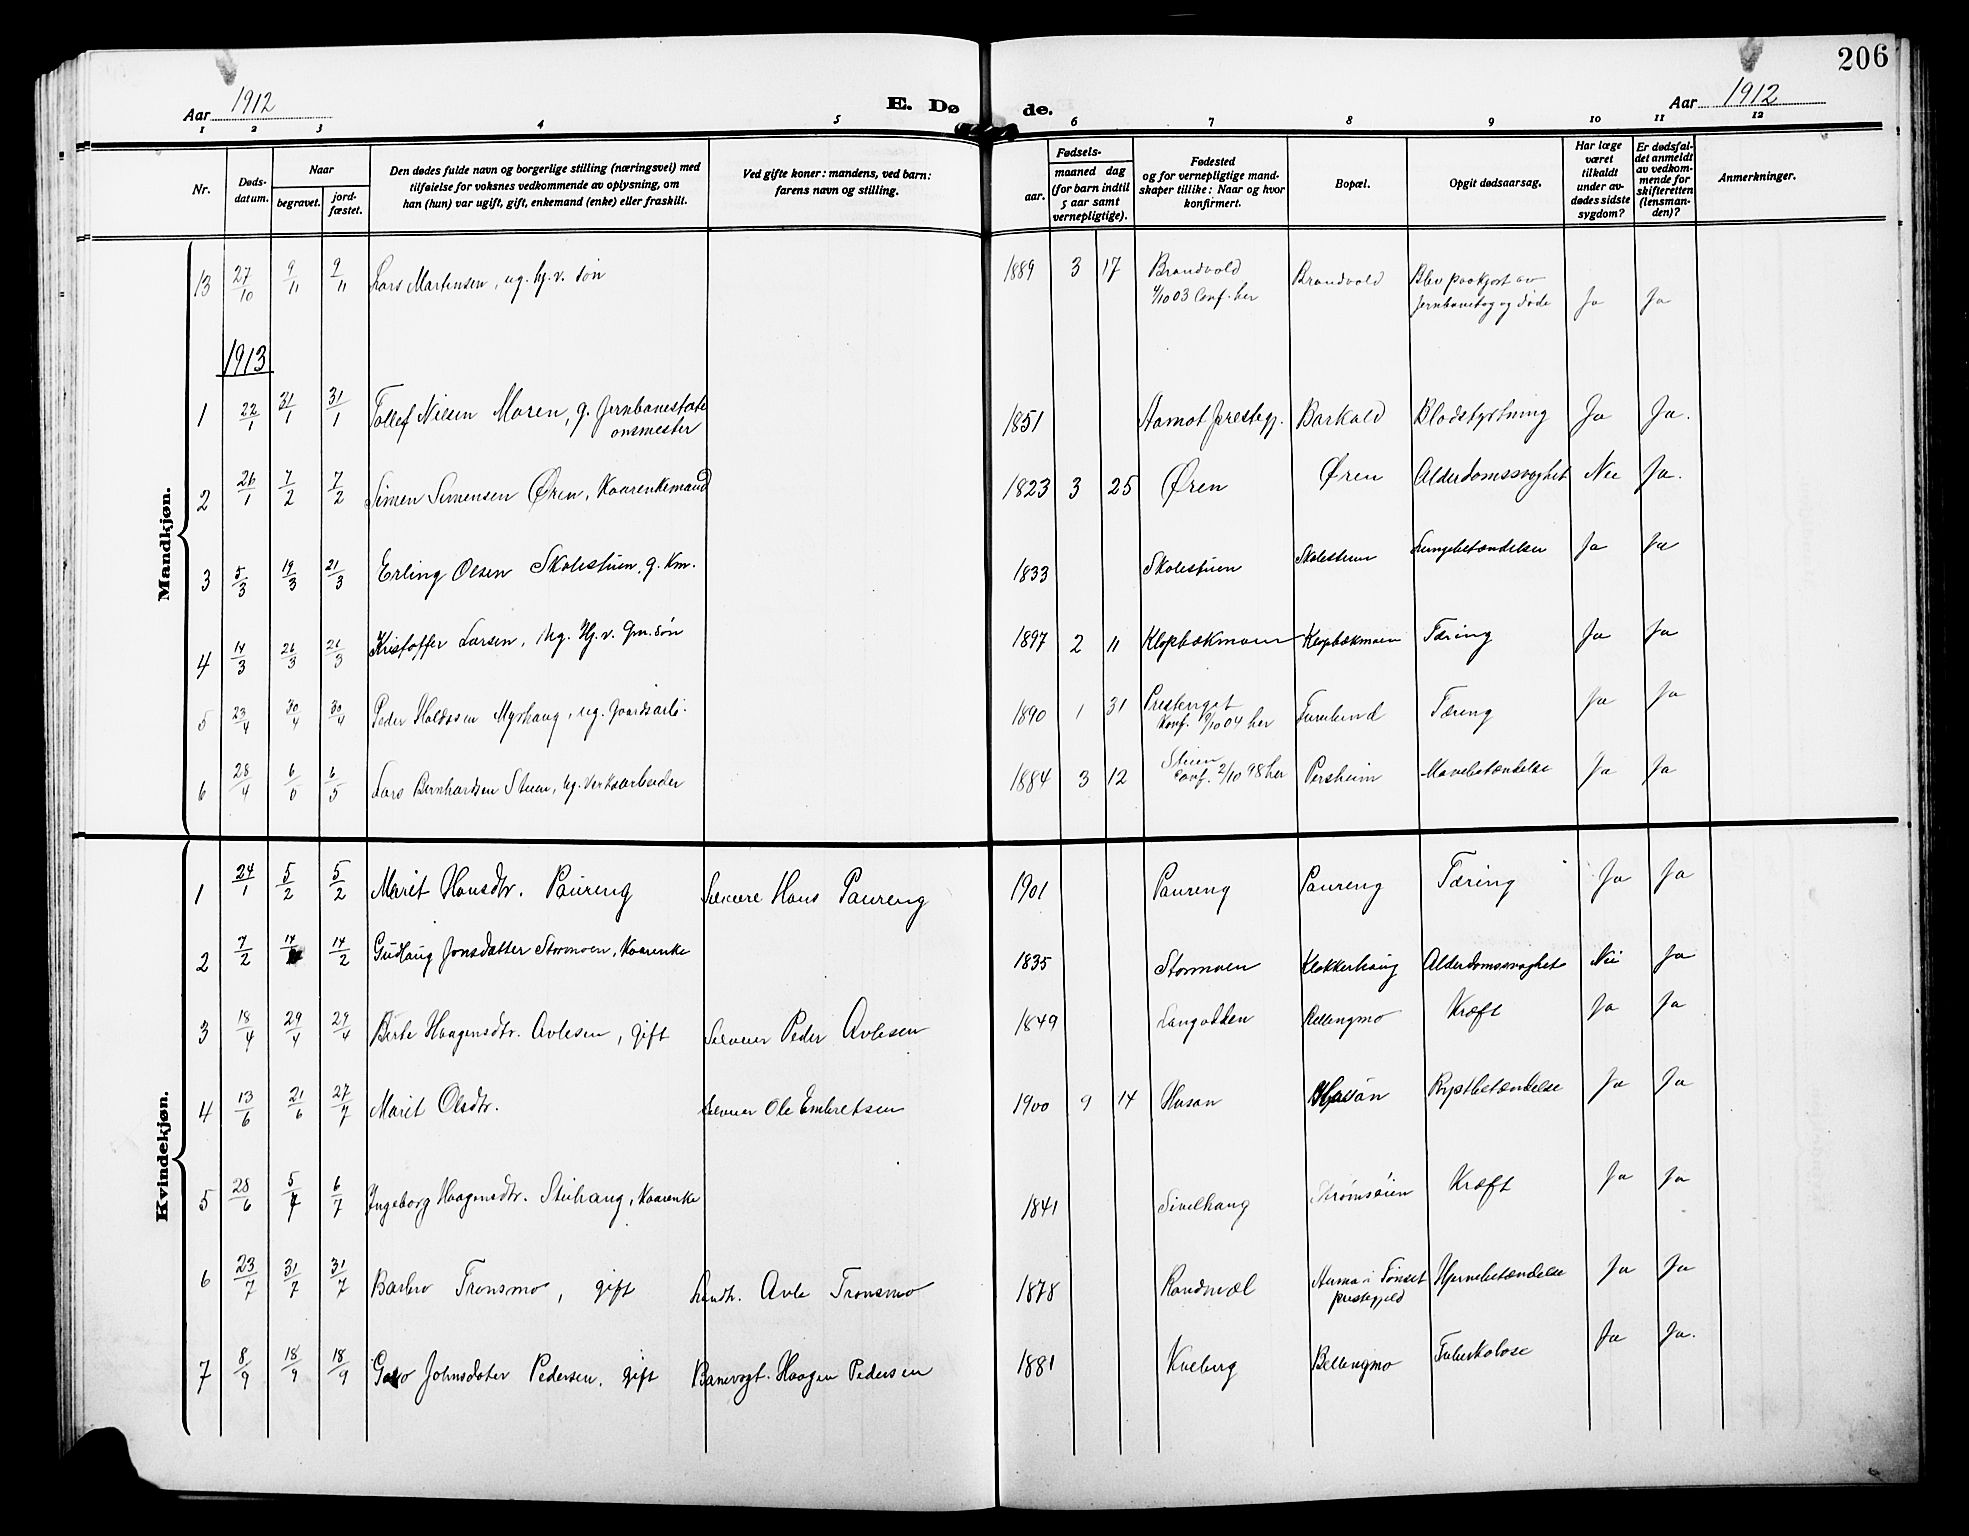 206
Aar 1912
E. Døde.
Aar 1912
1 2 3 4 5 6 7 8 9 10 11 12
Nr.
Døds-
datum.
Naar
begravet.
jord-
fæstet.
Den dødes fulde navn og borgerlige stilling (næringsvei) med
tilføielse for voksnes vedkommende av oplysning, om
han (hun) var ugift, gift, enkemand (enke) eller fraskilt.
Ved gifte koner: mandens, ved barn:
farens navn og stilling.
Fødsels-
aar.
maaned dag
(for barn indtil
5 aar samt
vernepligtige).
Fødested
og for vernepligtige mand-
skaper tillike: Naar og hvor
konfirmert.
Bopæl.
Opgit dødsaarsag.
Har læge
været
tilkaldt
under av-
dødes sidste
sygdom?
Er dødsfal-
det anmeldt
av vedkom-
mende for
skifteretten
(lensman-
den)?
Anmerkninger.
Mandkjøn.
13 27/10 9/11 9/11 Lars Martinsen, ug. hj. v. søn 1889 3 17 Brandvold Brandvold Blev paakjørt av
4/10 03 Conf. her jernbanetog og døde Ja Ja
1913
1 22/1 31/1 31/1 Tollef Nilsen Moren, g. Jernbanestati
onsmester 1851 Aamot prestegj. Barkald Blodstyrtning Ja Ja.
2 26/1 7/2 7/2 Simen Simensen Øren, Kaarenkemand 1823 3 25 Øren Øren Alderdomssvaghet Nei Ja.
3 5/3 19/3 21/3 Erling Olsen Skolestuen, g. Km. 1833 Skolestuen Skolestuen Lungebetændelse Ja Ja
4 14/3 26/3 26/3 Kristoffer Larsen, Ug. Hj. v. Gm. søn 1897 2 11 Klopbækmoen Klopbækmoen Tæring Ja Ja
5 23/4 30/4 30/4 Peder Haldosen Myrhaug, ug. Gaardsarb. 1890 1 31
Konf. 9/10 04 her Furulund Tæring Ja Ja
6 28/4 6/5 6/5 Lars Bernhardsen Stuen, ug. Verksarbeider 1884 3 12 Stuen
Conf. 2/10 98 her Persheim Mavebetændelse Ja Ja
Kvindekjøn.
1 24/1 5/2 5/2 Marit Hansdtr. Paureng Selveier Hans Paureng 1901 Paureng Paureng Tæring Ja Ja
2 7/2 14/2 14/2 Gudlaug Jonsdatter Stormoen, Kaarenke 1835 Stormoen Klokkerhaug Alderdomssvaghet Nei Ja
3 18/4 29/4 29/4 Berte Haagensdtr. Avlesen, gift Selveier Peder Avlesen 1849 Langodden Bellingmo Kræft Ja Ja
4 13/6 21/6 27/7 Marit Olsdtr. Selveier Ole Embretsen 1900 9 14 Husan Brystbetændelse Ja Ja
5 28/6 5/7 6/7 Ingeborg Haagensdtr. Stuhaug, Kaarenke 1841 Strømsøien Kræft Ja Ja
6 23/7 31/7 31/7 Barbro Tronsmo, gift Landh. Avle Tronsmo 1878 Randmæl Auma i Tønset
prestegjeld Hjernebetændelse Ja Ja
7 8/9 18/9 18/9 Johnsdater Pedersen, gift Banevogt. Haagen Pedersen 1881 Kveberg Bellingmo Tuberkolose Ja Ja.